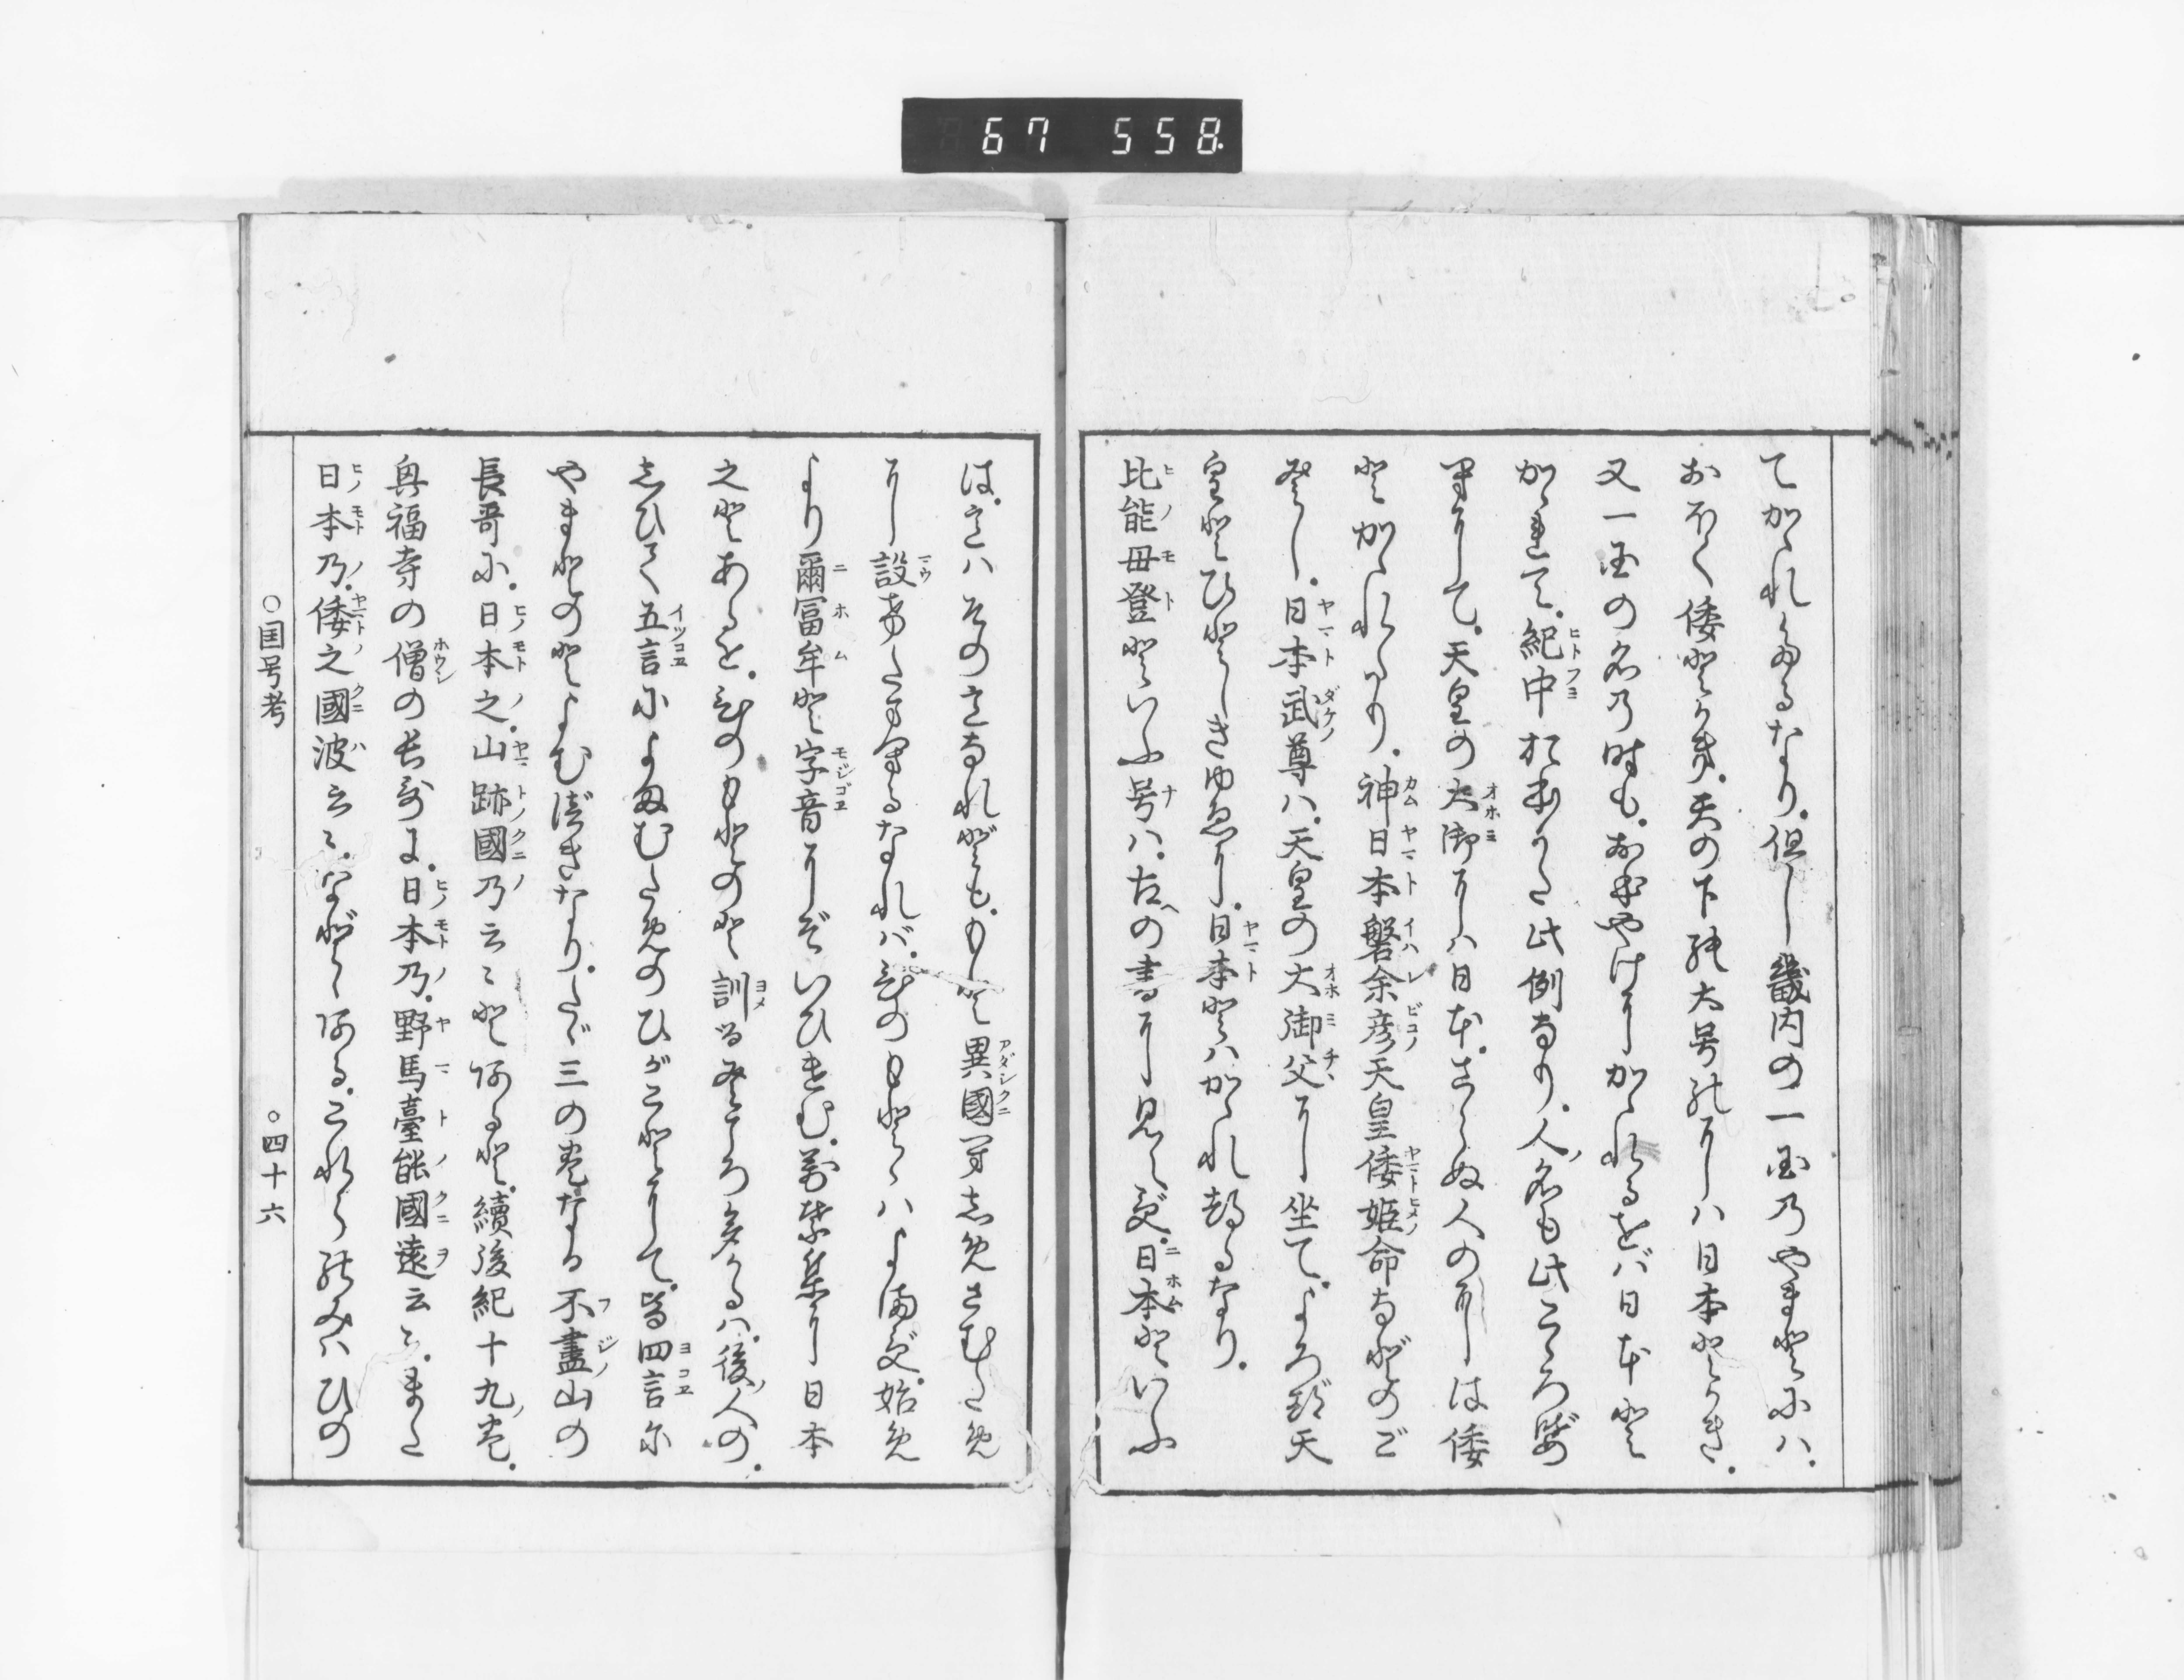 67 558.
てかゝれたるなり。但し畿内の一国のやまとには。
おほく倭とかき。天の下の大号のにしは日本とかき。
又一国の名の時も。おほやけにかゝれるをば日本と
かゝれて。紀中おほかた此例なり。人ノ名も此こゝろばへ
にして。天皇の大御にしは日本。さらぬ人のにしは倭
とかゝれたり。神日本磐余彦天皇倭姫命などのご
とし。日本武尊は。天皇の大御父にし坐て。よろづ天
皇とひとしきゆゑに。日本とはかゝれたるなり。
比能毋登といふ号は。古への書に見えず。日本といふ
は。そはその意なれども。もと異國へしめさむために
にし設けたまへるなれば。ひのもとゝはよまず。始め
より爾富牟と字音にしぞいひけむ。萬葉集に日本
之とあるを。ひのもとのと訓るところ多かるは。後ノ人の。
しひて五言によまむためのひがことにして。皆四言に
やまとのとよむべきなり。たゞ三の巻なる不盡山の
長哥に。日本之。山跡國乃云々とあると。續後紀十九ノ巻。
興福寺の僧の長哥に。日本乃。野馬臺能國遠云々。また
日本乃。倭之國波云々。などゝある。これらのみは ひの
○国号考
○四十六